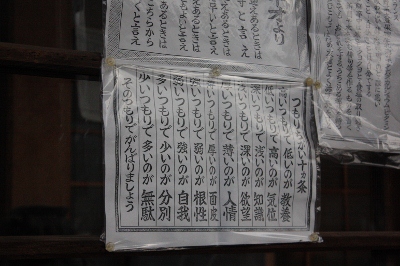 より
えあるときは
と言え
えあるときは
よいと言え
えあるときは
こちらから
くと言え
つもりちがい十カ条
高いつもりで低いのが教養
低いつもりで高いのが気位
深いつもりで浅いのが知識
浅いつもりで深いのが欲望
厚いつもりで薄いのが人情
薄いつもりで厚いのが面皮
強いつもりで弱いのが根性
弱いつもりで強いのが自我
多いつもりで少いのが分別
少いつもりで多いのが無駄
そのつもりでがんばりましょう